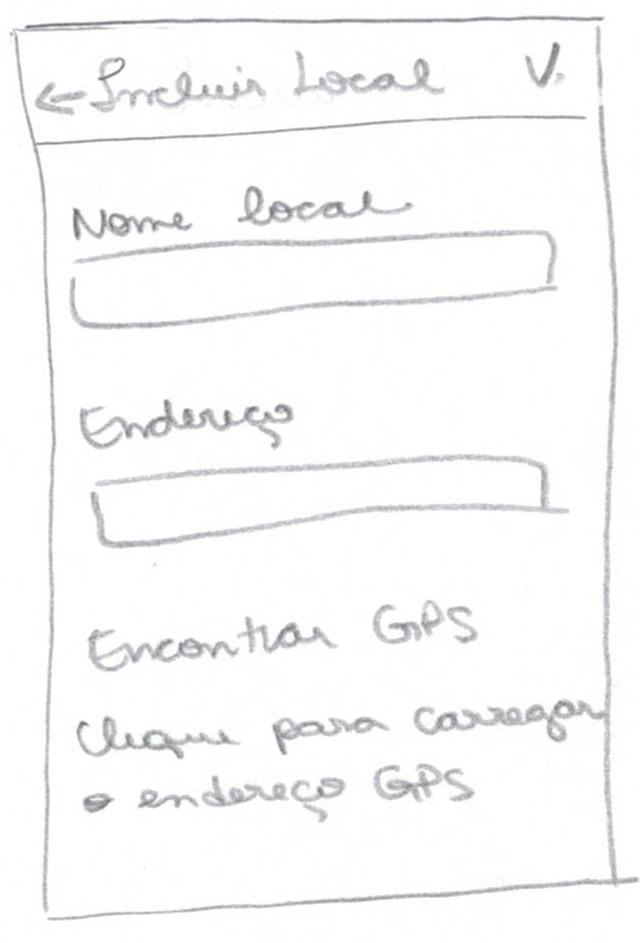 ← Incluir Local V.
Nome local
Endereço
Encontrar GPS
Clique para carregar
o endereço GPS